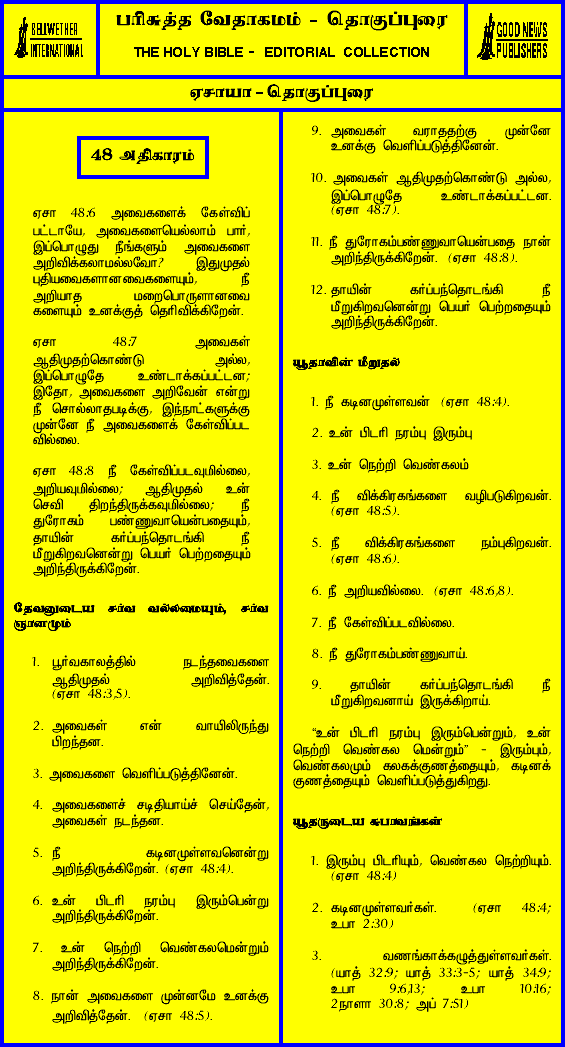 BELLWETHER
INTERNATIONAL
பரிசுத்த வேதாகமம் - தொகுப்புரை
THE HOLY BIBLE - EDITORIAL COLLECTION
GOOD NEWS
PUBLISHERS
ஏசாயா - தொகுப்புரை
48 அதிகாரம்
ஏசா 48:6 அவைகளைக் கேள்விப்
பட்டாயே, அவைகளையெல்லாம் பார்,
இப்பொழுது நீங்களும் அவைகளை
அறிவிக்கலாமல்லவோ? இதுமுதல்
புதியவைகளானவைகளையும், நீ
அறியாத மறைபொருளானவை
களையும் உனக்குத் தெரிவிக்கிறேன்.
ஏசா 48:7 அவைகள்
ஆதிமுதற்கொண்டு அல்ல,
இப்பொழுதே உண்டாக்கப்பட்டன;
இதோ, அவைகளை அறிவேன் என்று
நீ சொல்லாதபடிக்கு, இந்நாட்களுக்கு
முன்னே நீ அவைகளைக் கேள்விப்பட
வில்லை.
ஏசா 48:8 நீ கேள்விப்படவுமில்லை,
அறியவுமில்லை; ஆதிமுதல் உன்
செவி திறந்திருக்கவுமில்லை; நீ
துரோகம் பண்ணுவாயென்பதையும்,
தாயின் கர்ப்பந்தொடங்கி நீ
மீறுகிறவனென்று பெயர் பெற்றதையும்
அறிந்திருக்கிறேன்.
தேவனுடைய சர்வ வல்லமையும், சர்வ
ஞானமும்
1. பூர்வகாலத்தில் நடந்தவைகளை
ஆதிமுதல் அறிவித்தேன்.
(ஏசா 48:3,5).
2. அவைகள் என் வாயிலிருந்து
பிறந்தன.
3. அவைகளை வெளிப்படுத்தினேன்.
4. அவைகளைச் சடிதியாய்ச் செய்தேன்,
அவைகள் நடந்தன.
5. நீ கடினமுள்ளவனென்று
அறிந்திருக்கிறேன். (ஏசா 48:4).
6. உன் பிடரி நரம்பு இரும்பென்று
அறிந்திருக்கிறேன்.
7. உன் நெற்றி வெண்கலமென்றும்
அறிந்திருக்கிறேன்.
8. நான் அவைகளை முன்னமே உனக்கு
அறிவித்தேன். (ஏசா 48:5).
9. அவைகள் வராததற்கு முன்னே
உனக்கு வெளிப்படுத்தினேன்.
10. அவைகள் ஆதிமுதற்கொண்டு அல்ல,
இப்பொழுதே உண்டாக்கப்பட்டன.
(ஏசா 48:7).
11. நீ துரோகம்பண்ணுவாயென்பதை நான்
அறிந்திருக்கிறேன். (ஏசா 48:8).
12. தாயின் கர்ப்பந்தொடங்கி நீ
மீறுகிறவனென்று பெயர் பெற்றதையும்
அறிந்திருக்கிறேன்.
யூதாவின் மீறுதல்
1. நீ கடினமுள்ளவன் (ஏசா 48:4).
2. உன் பிடரி நரம்பு இரும்பு
3. உன் நெற்றி வெண்கலம்
4. நீ விக்கிரகங்களை வழிபடுகிறவன்.
(ஏசா 48:5).
5. நீ விக்கிரகங்களை நம்புகிறவன்.
(ஏசா 48:6).
6. நீ அறியவில்லை. (ஏசா 48:6,8).
7. நீ கேள்விப்படவில்லை.
8. நீ துரோகம்பண்ணுவாய்.
9. தாயின் கர்ப்பந்தொடங்கி நீ
மீறுகிறவனாய் இருக்கிறாய்.
“உன் பிடரி நரம்பு இரும்பென்றும், உன்
நெற்றி வெண்கல மென்றும்” - இரும்பும்,
வெண்கலமும் கலகக்குணத்தையும், கடினக்
குணத்தையும் வெளிப்படுத்துகிறது.
யூதருடைய சுபாவங்கள்
1. இரும்பு பிடரியும், வெண்கல நெற்றியும்.
(ஏசா 48:4)
2. கடினமுள்ளவர்கள். (ஏசா 48:4;
உபா 2:30)
3. வணங்காக்கழுத்துள்ளவர்கள்.
(யாத் 32:9; யாத் 33:3-5; யாத் 34:9;
உபா 9:6,13; உபா 10:16;
2நாளா 30:8; அப் 7:51)